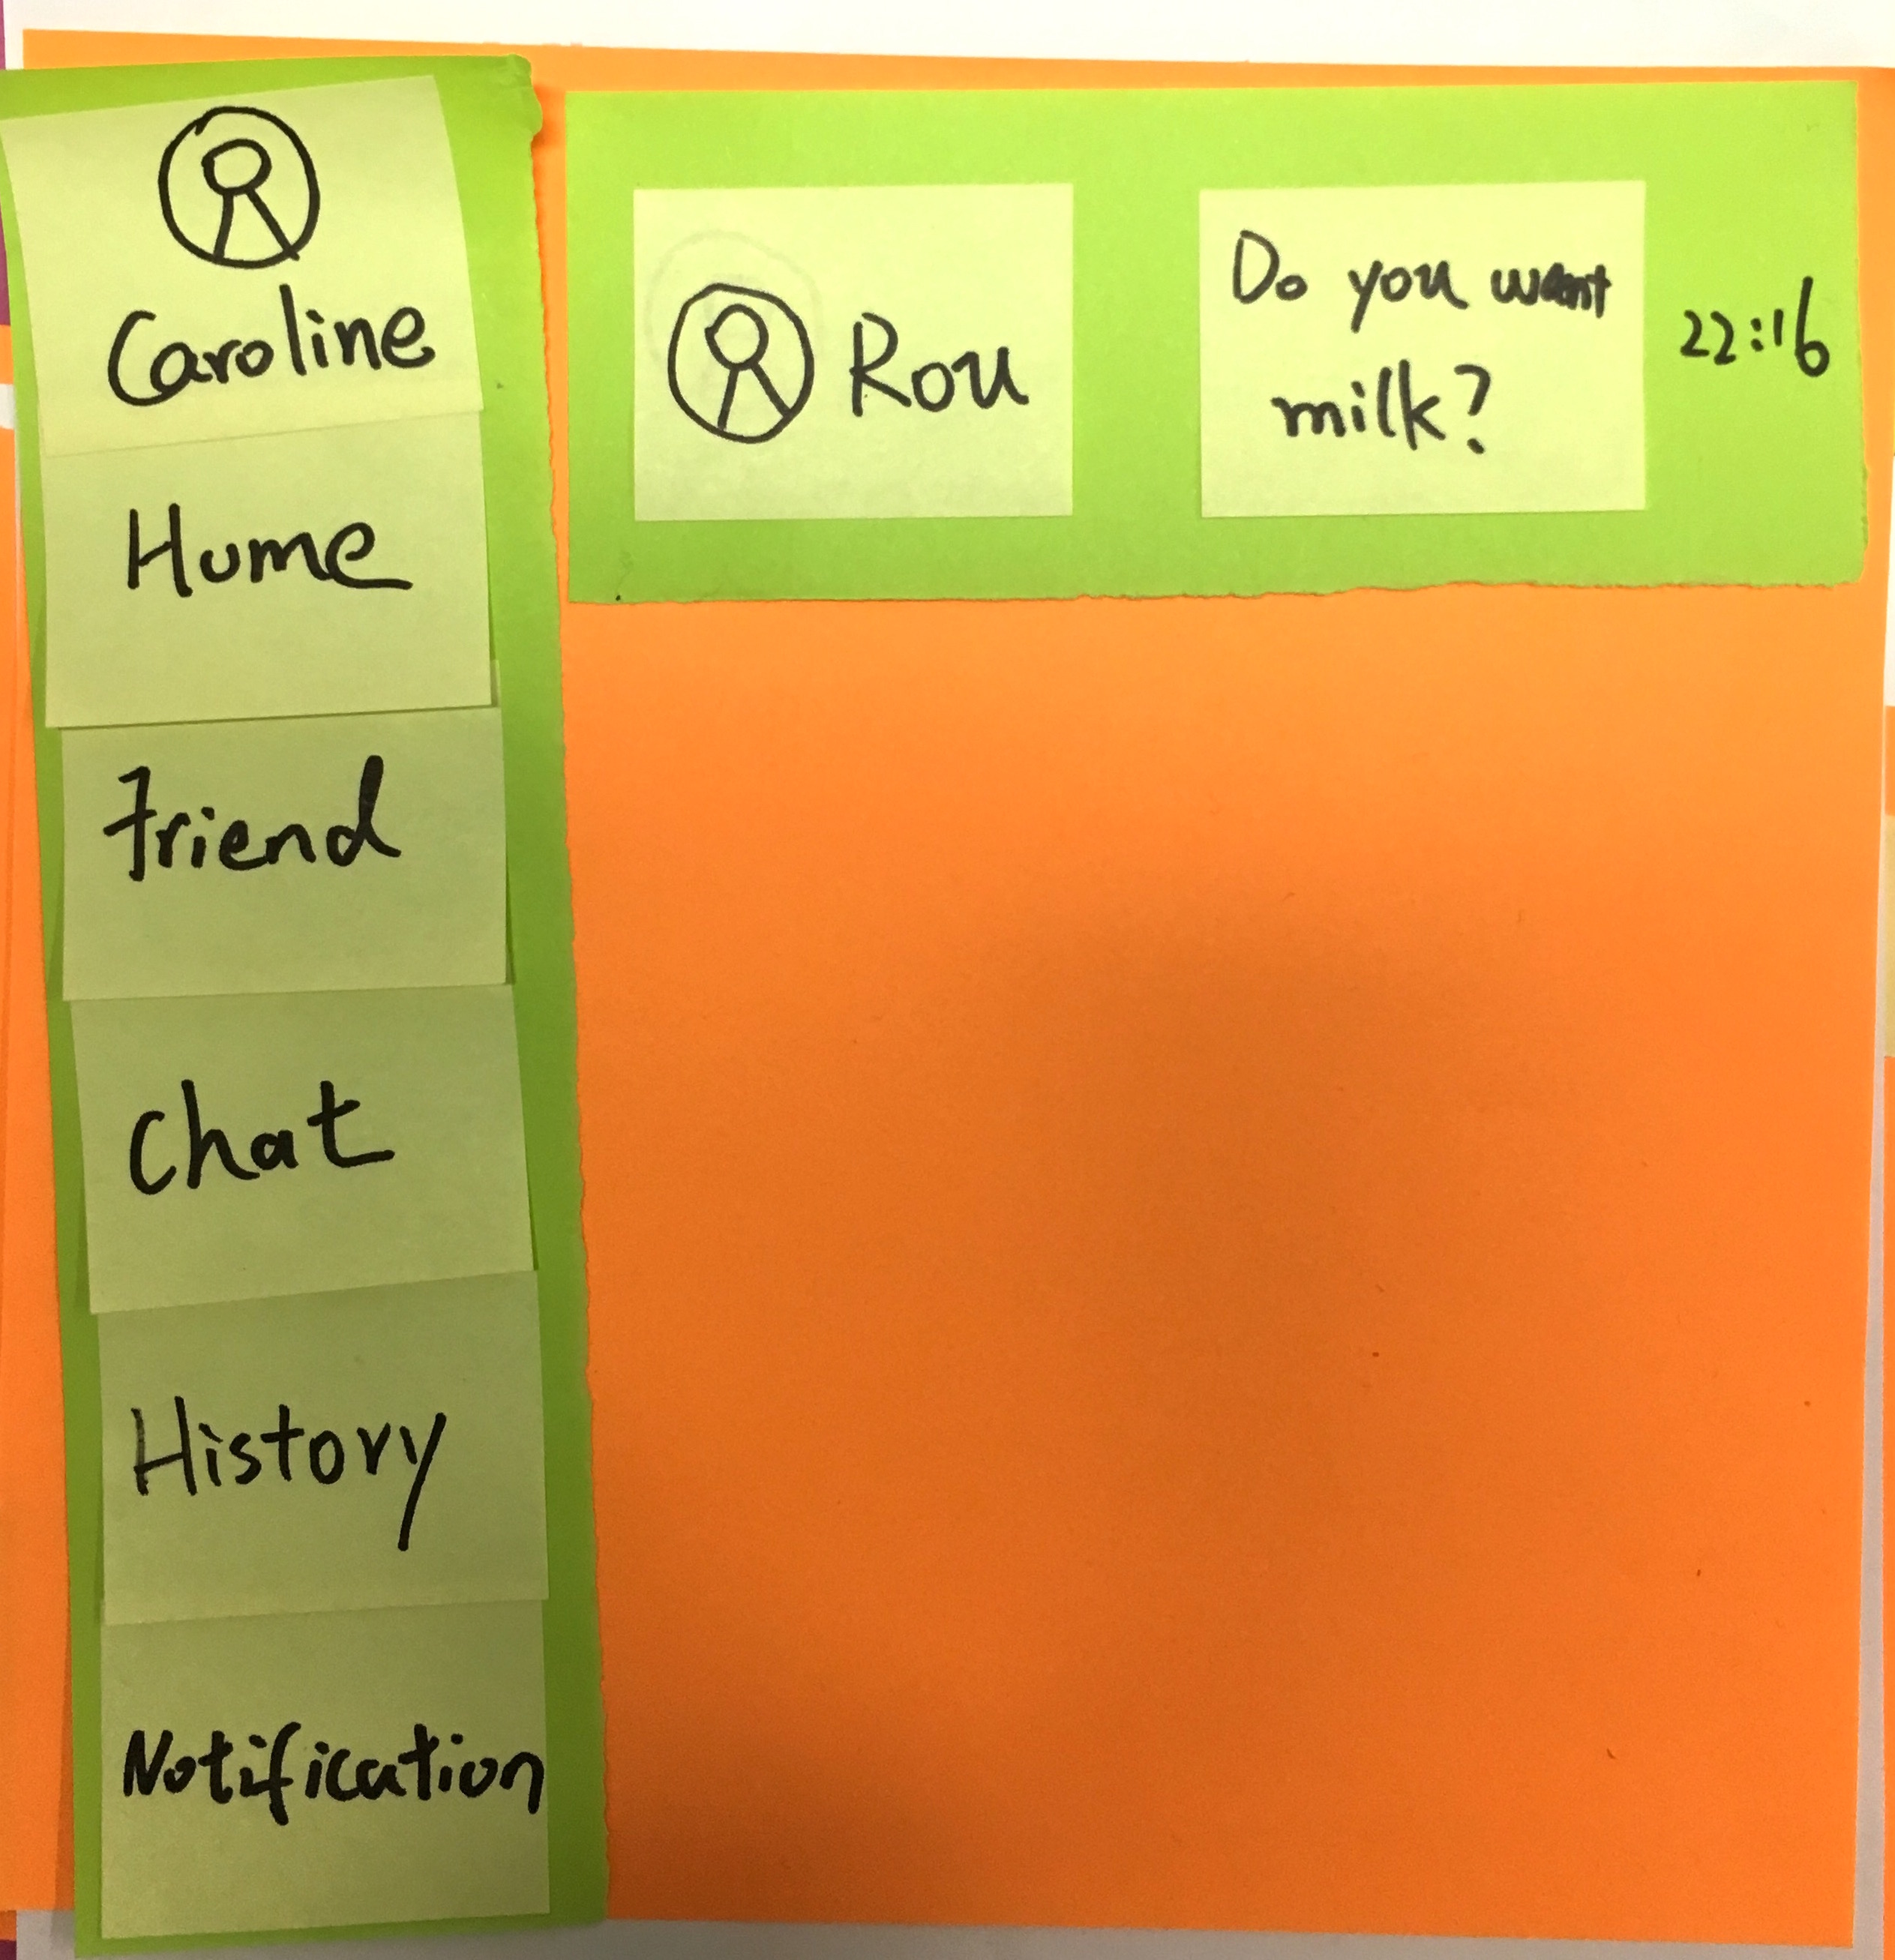 Caroline
Home
Friend
Chat
History
Notification
Rou
Do you want
milk?
22:16